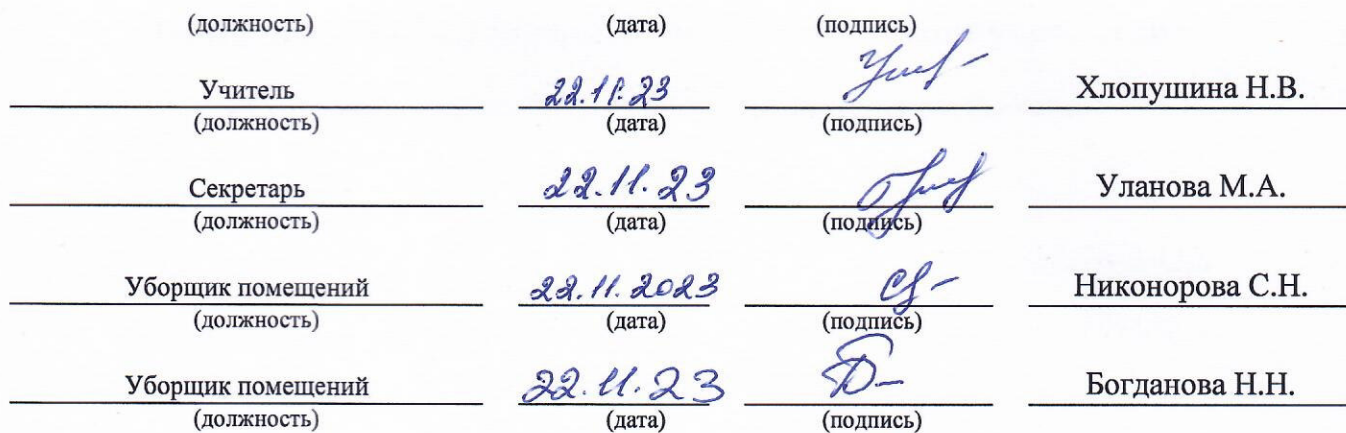 (должность) (дата) (подпись)
Учитель 22.11.23 Хлопушина Н.В.
(должность) (дата) (подпись)
Секретарь 22.11.23 Уланова М.А.
(должность) (дата) (подпись)
Уборщик помещений 22.11.2023 Никонорова С.Н.
(должность) (дата) (подпись)
Уборщик помещений 22.11.23 Богданова Н.Н.
(должность) (дата) (подпись)